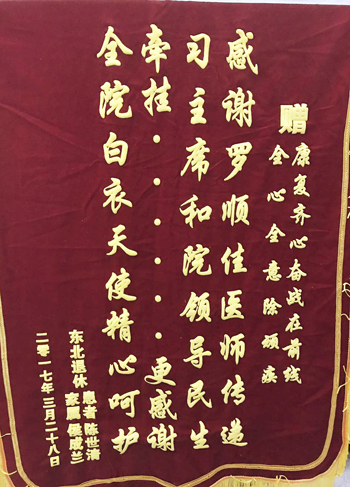 赠
康复齐心奋战在前线
全心全意除顽疾
感谢罗顺佳医师传递
习主席和院领导民生
牵挂······更感谢
全院白衣天使精心呵护
东北退休
患者陈世清
家属侯成兰
二零一七年三月二十八日